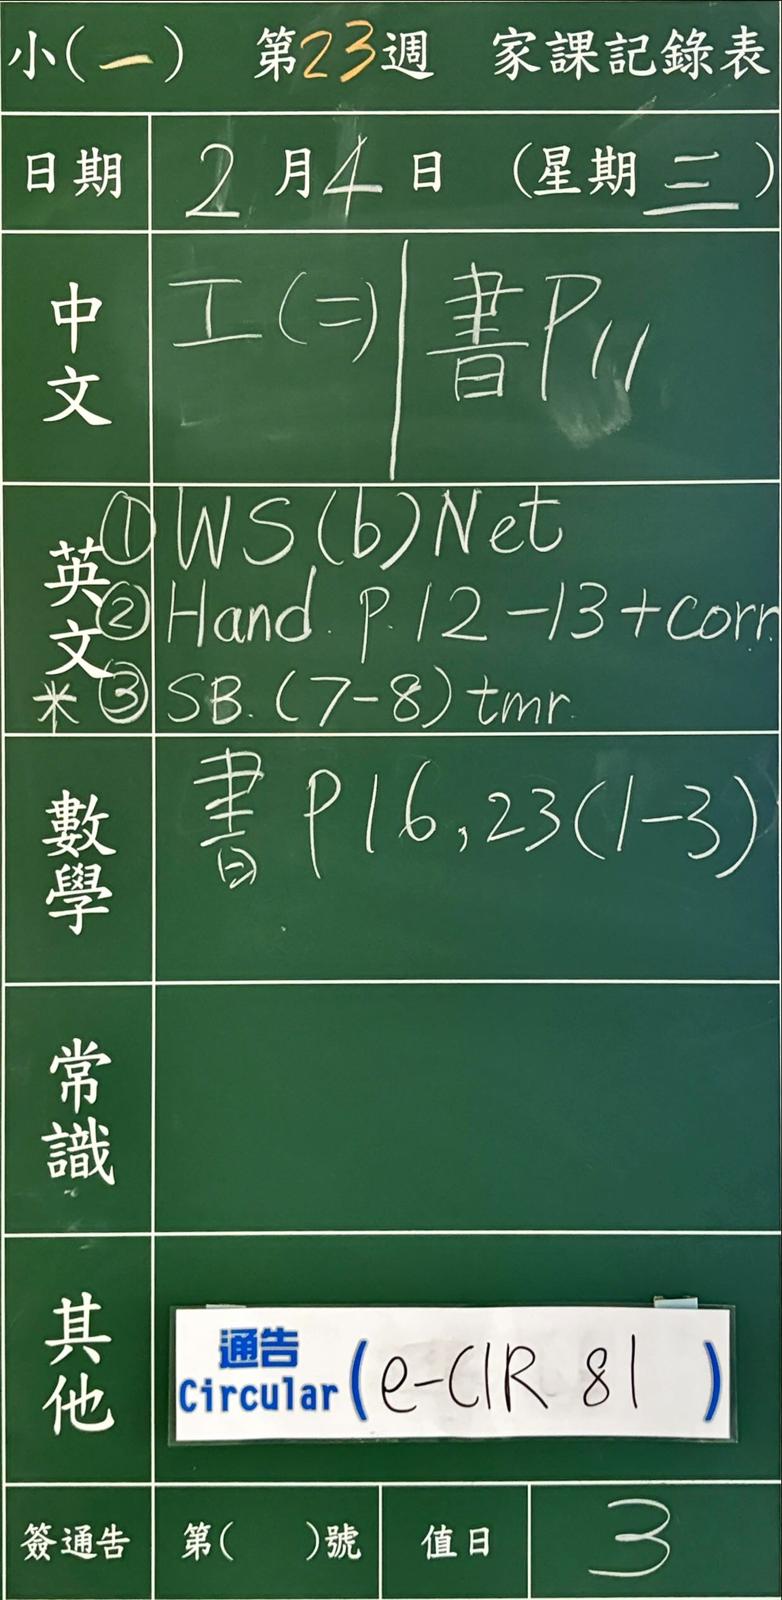 小(一) 第23週 家課記錄表
日期 2月4日 (星期三)
中文 工(二) 書P11
英文 ① WS(b)Net
② Hand. P.12-13+corr
* ③ SB.(7-8) tmr.
數學 書 P16,23(1-3)
常識
其他 通告
Circular (e-CIR 81)
簽通告 第( )號 值日 3